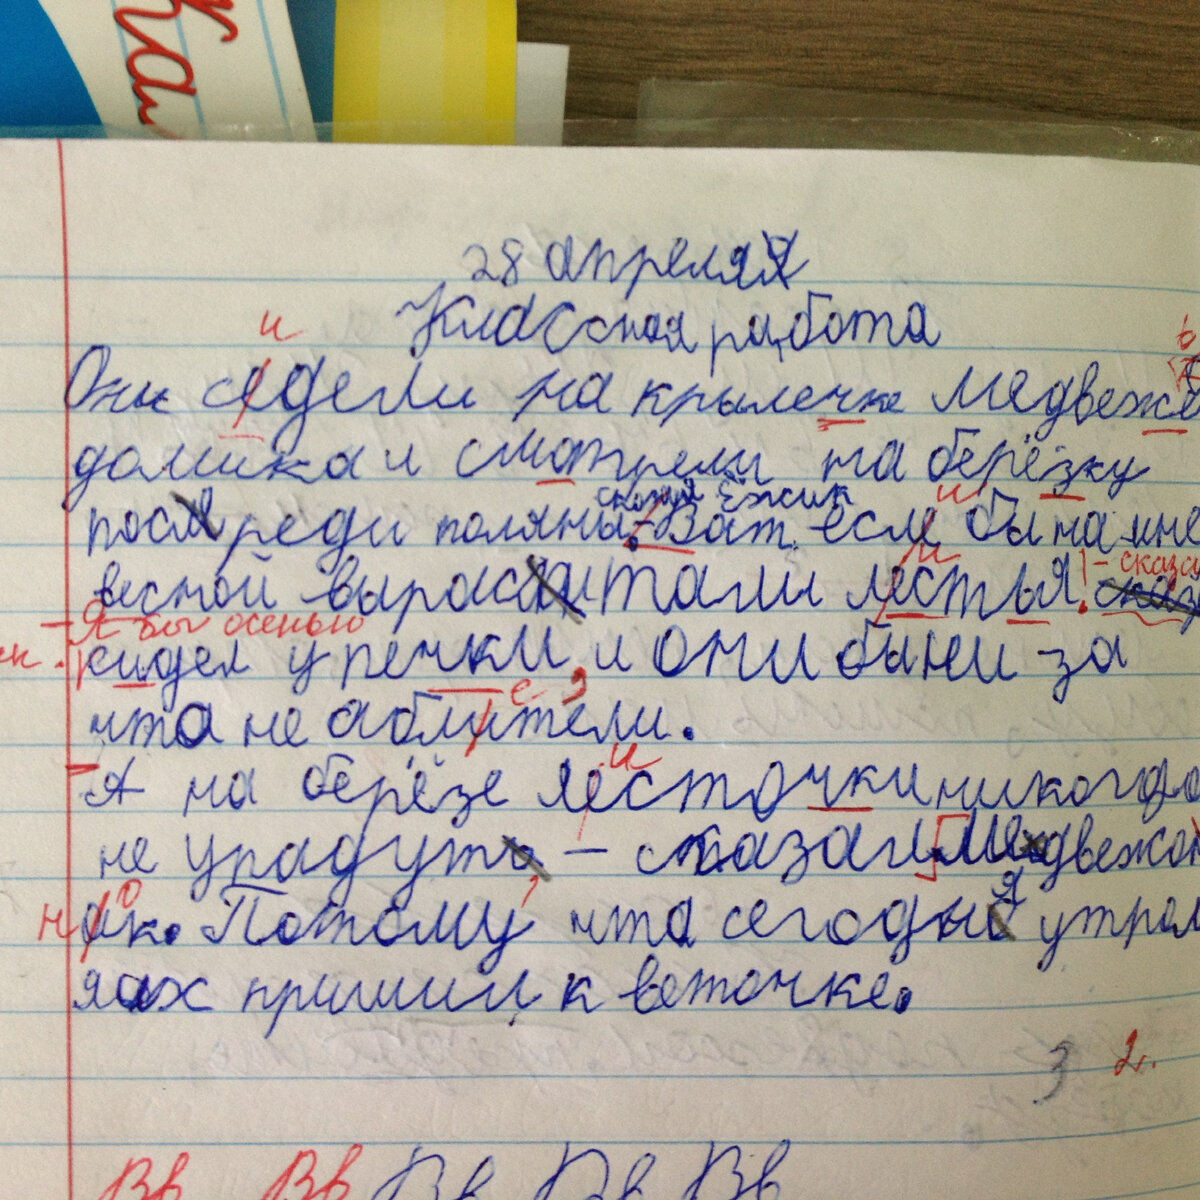 ка
28 апреля
Классная работа
и
ь
Они седели на крылечке медвеже
домика и смотрели на берёзку
сказал Ёжик
посреди поляны. - Вот если бы на мне
и
весной вырастали лестья! - сказал
- Я бы осенью
сидел у речки, и они бы ни за
е
что не аблители.
и
- А на берёзе лесточки никогда
не упадут - сказал Медвежон
о
ак. Потому что сегодня утром
я их пришил к веточке.
3 2.
Вв Вв Вв Вв Вв